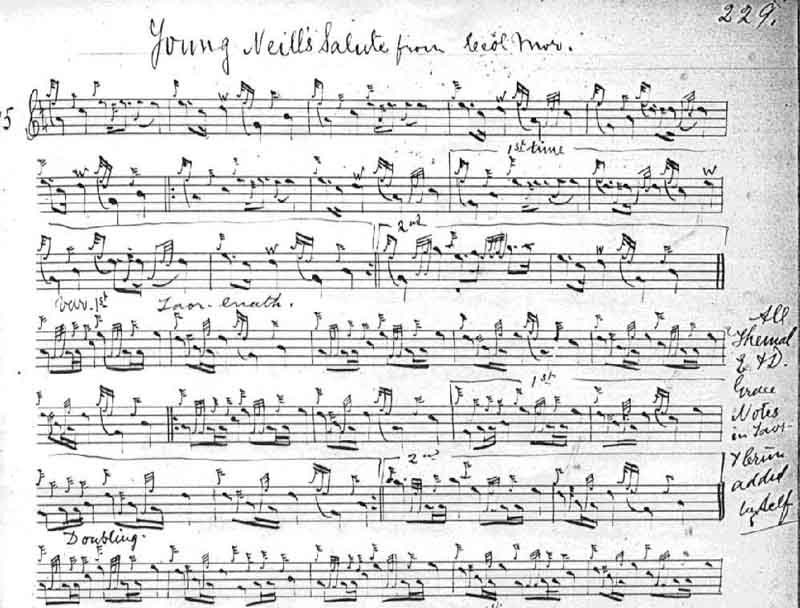 229.
Young Neill's Salute from Ceòl Mor.
5
W
W
W
1st time
W
W
2nd
W
W
Var. 1st Taor-luath.
All
Themal
E & D.
Grace
Notes
in Taor-
& Crun
added
by Self
1st
2nd
Doubling.